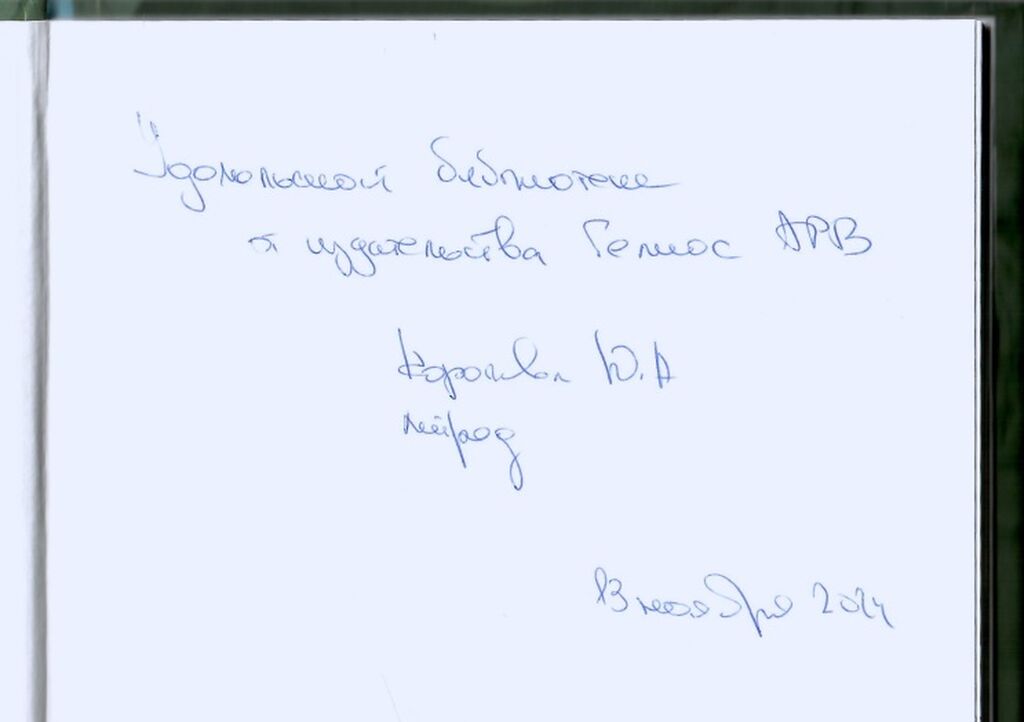 Удомельской библиотеке
от издательства Гелиос АРВ
Ю.А
13 ноября 2024